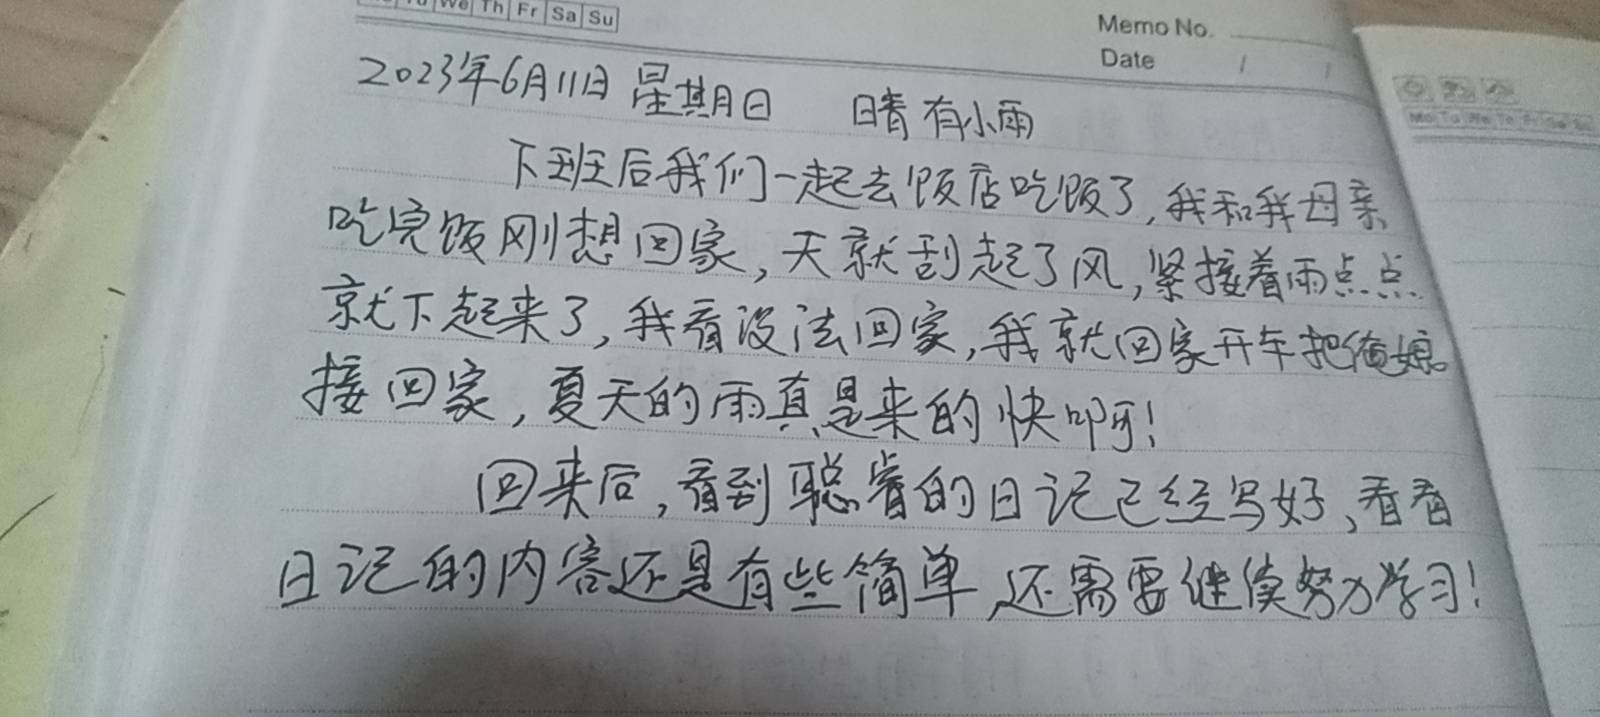 We Th Fr Sa Su
Memo No.
Date / /
2023年6月11日 星期日 晴 有小雨
下班后我们一起去饭店吃饭了,我和我母亲
吃完饭刚想回家,天就刮起了风,紧接着雨点点
就下起来了,我看没法回家,我就回家开车把俺娘
接回家,夏天的雨真是来的快啊!
回来后,看到聪睿的日记已经写好,看看
日记的内容还是有些简单,还需要继续努力学习!
Mo Tu We Th Fr Sa Su